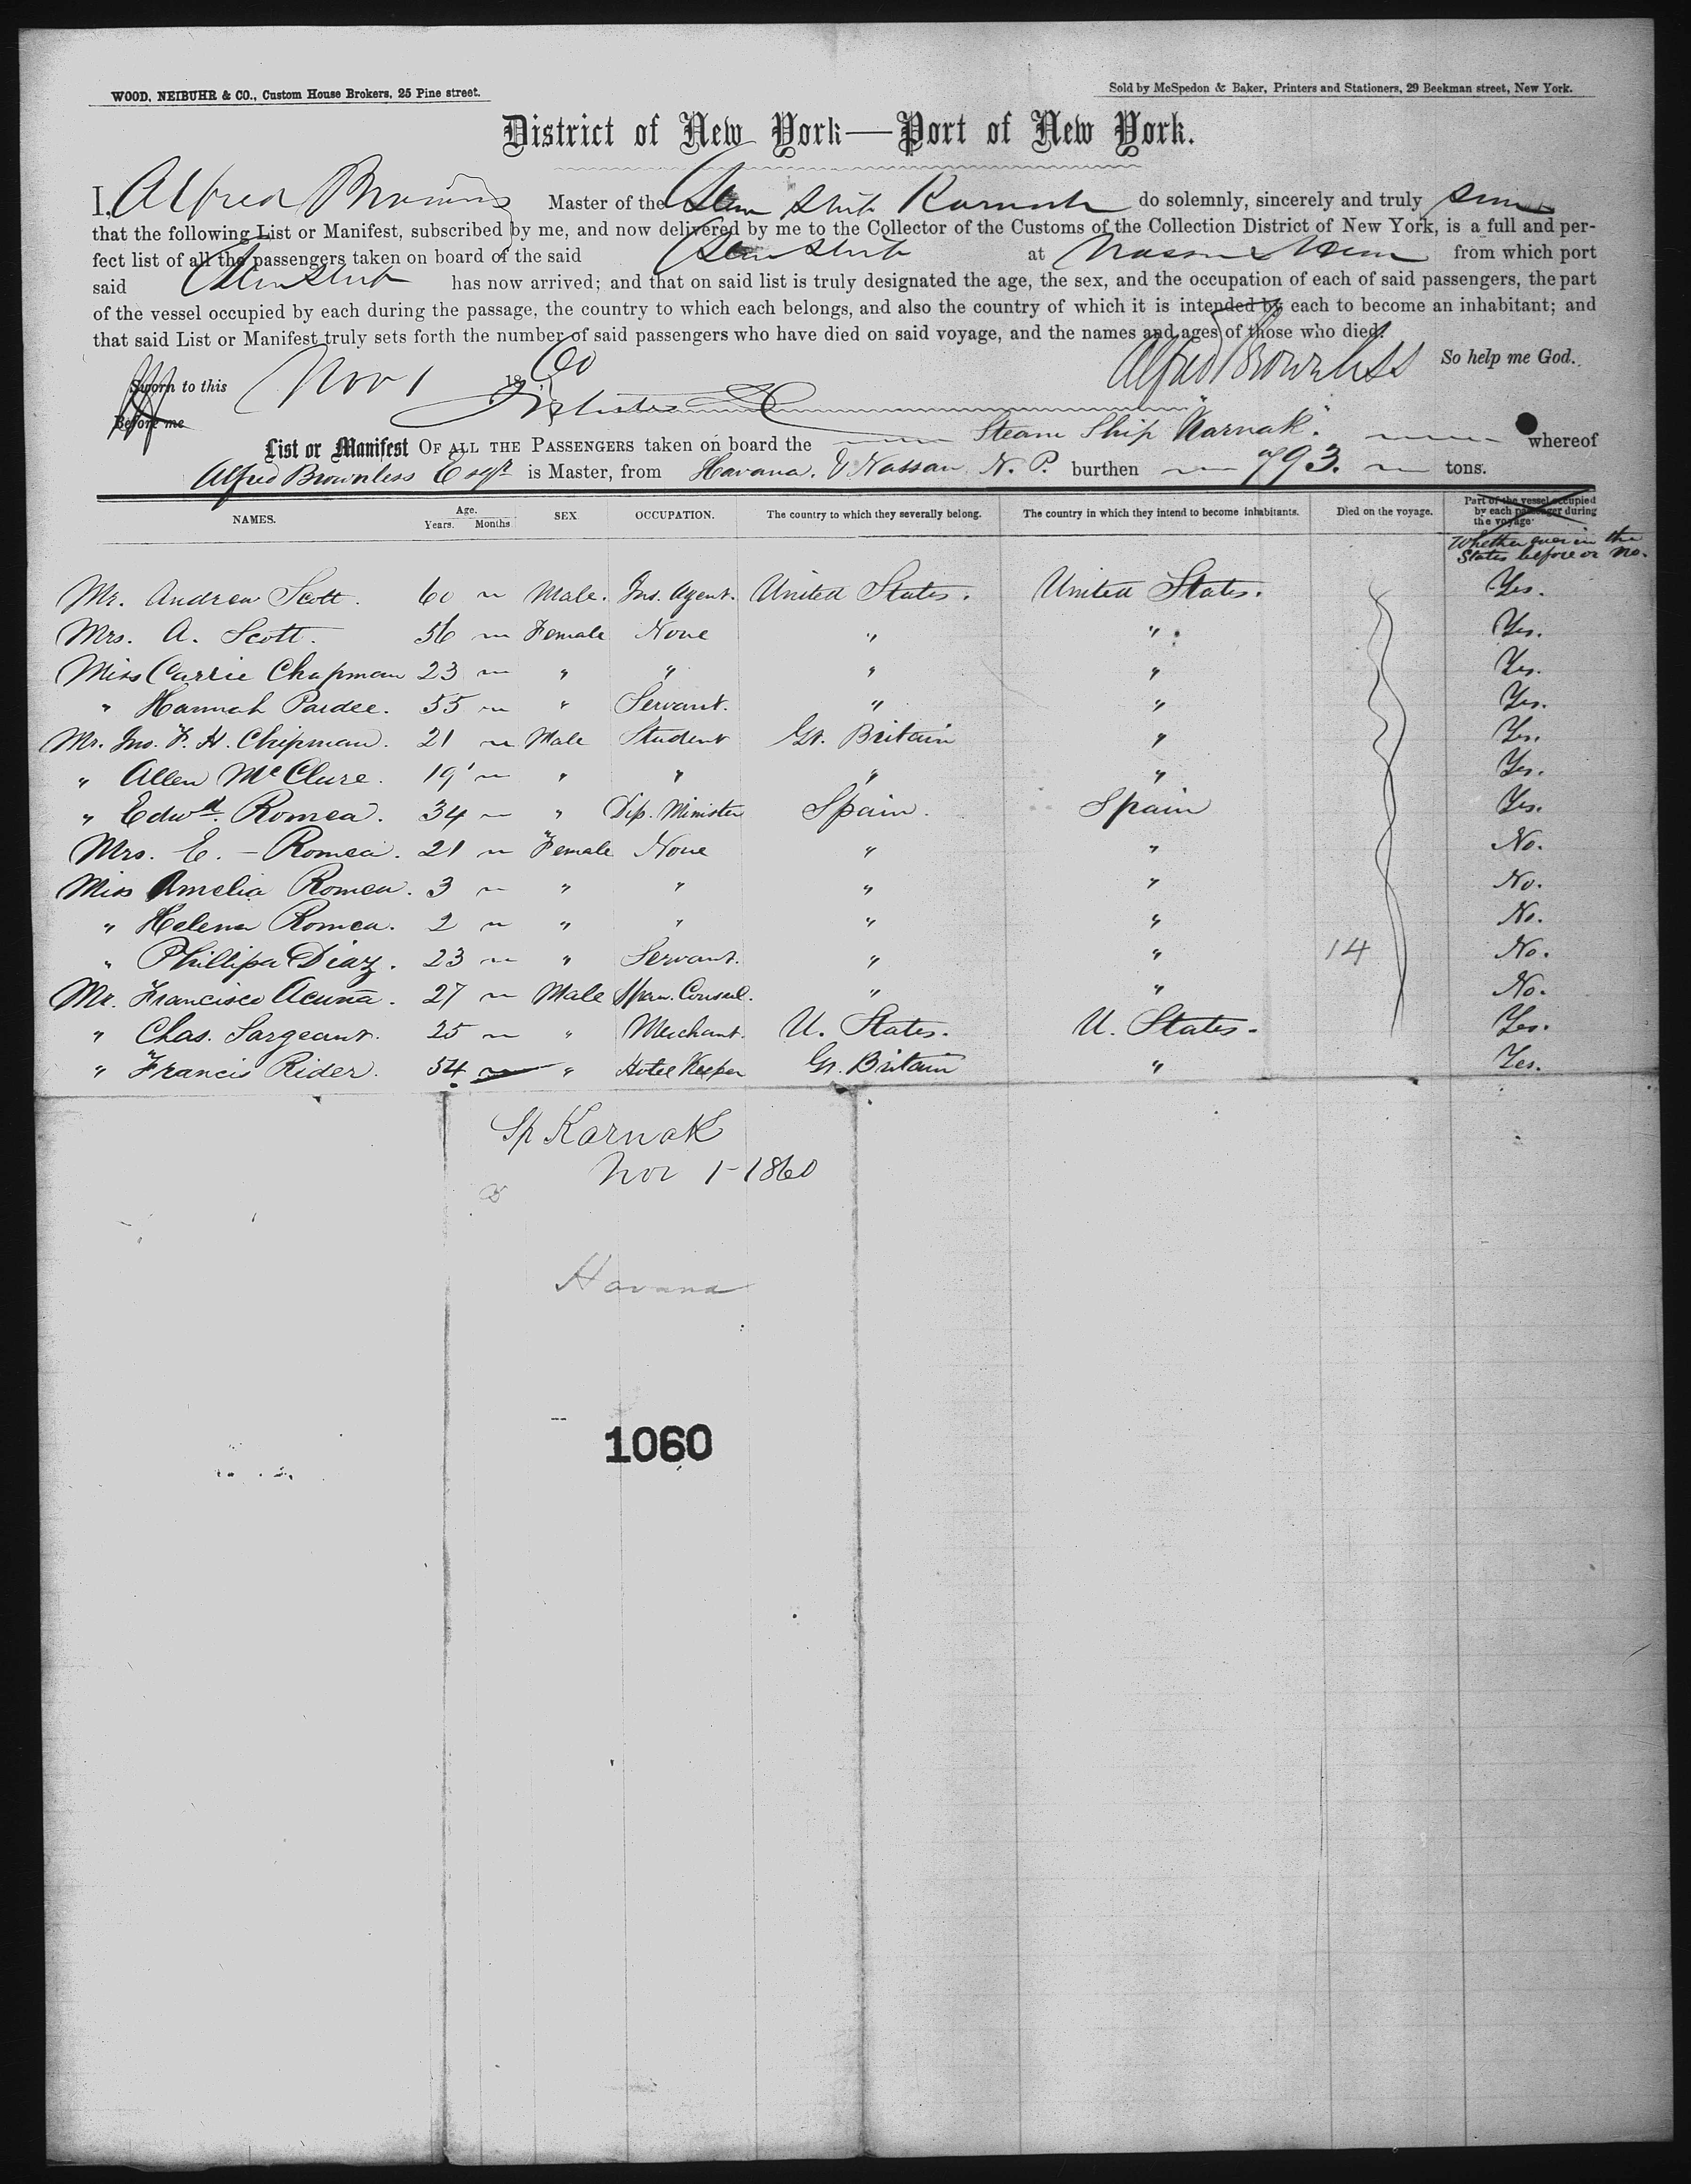 WOOD, NEIBUHR & CO., Custom House Brokers, 25 Pine street.
Sold by McSpedon & Baker, Printers and Stationers, 29 Beekman street, New York.
District of New York—Port of New York.
I, Alfred Master of the Ship Karnak do solemnly, sincerely and truly
that the following List or Manifest, subscribed by me, and now delivered by me to the Collector of the Customs of the Collection District of New York, is a full and per-
fect list of all the passengers taken on board of the said at from which port
said has now arrived; and that on said list is truly designated the age, the sex, and the occupation of each of said passengers, the part
of the vessel occupied by each during the passage, the country to which each belongs, and also the country of which it is intended by each to become an inhabitant; and
that said List or Manifest truly sets forth the number of said passengers who have died on said voyage, and the names and ages of those who died.
Alfred Brownless So help me God.
Sworn to this Nov 1 1860
Before me
List or Manifest OF ALL THE PASSENGERS taken on board the Steam Ship "Karnak". whereof
Alfred Brownless Esqr is Master, from Havana. & Nassau N. P. burthen 793. tons.
NAMES. Age. Years. Months SEX OCCUPATION. The country to which they severally belong. The country in which they intend to become inhabitants. Died on the voyage. Part of the vessel occupied by each passenger during the voyage
Whether ever in the States before or no.
Mr. Andrew Scott. 60 Male. Ins. Agent. United States. United States. Yes.
Mrs. A. Scott. 56 Female None " " Yes.
Miss Carrie Chapman 23 " " " " Yes.
" Hannah Pardee. 55 " Servant. " " Yes.
Mr. Jno. F. H. Chipman. 21 Male Student Gt. Britain " Yes.
" Allen McClure. 19 " " " " Yes.
" Edwd. Romea. 34 " Dip. Minister Spain. Spain Yes.
Mrs. E. - Romea. 21 Female None " " No.
Miss Amelia Romea. 3 " " " " No.
" Helena Romea. 2 " " " " No.
" Phillipa Diaz. 23 " Servant. " " 14 No.
Mr. Francisco Acuña. 27 Male Span. Consul. " " No.
" Chas. Sargeant. 25 " Merchant. U. States. U. States. Yes.
" Francis Rider. 54 " Hotel Keeper Gt. Britain " Yes.
Sp Karnak
Nov 1-1860
Havana
1060